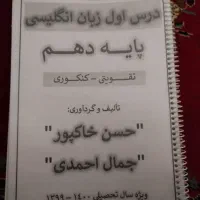 درس اول زبان انگلیسی
پایه دهم
تقویتی - کنکوری
تالیف و گردآوری:
"حسن خاکپور"
"جمال احمدی"
ویژه سال تحصیلی ۱۴۰۰ - ۱۳۹۹